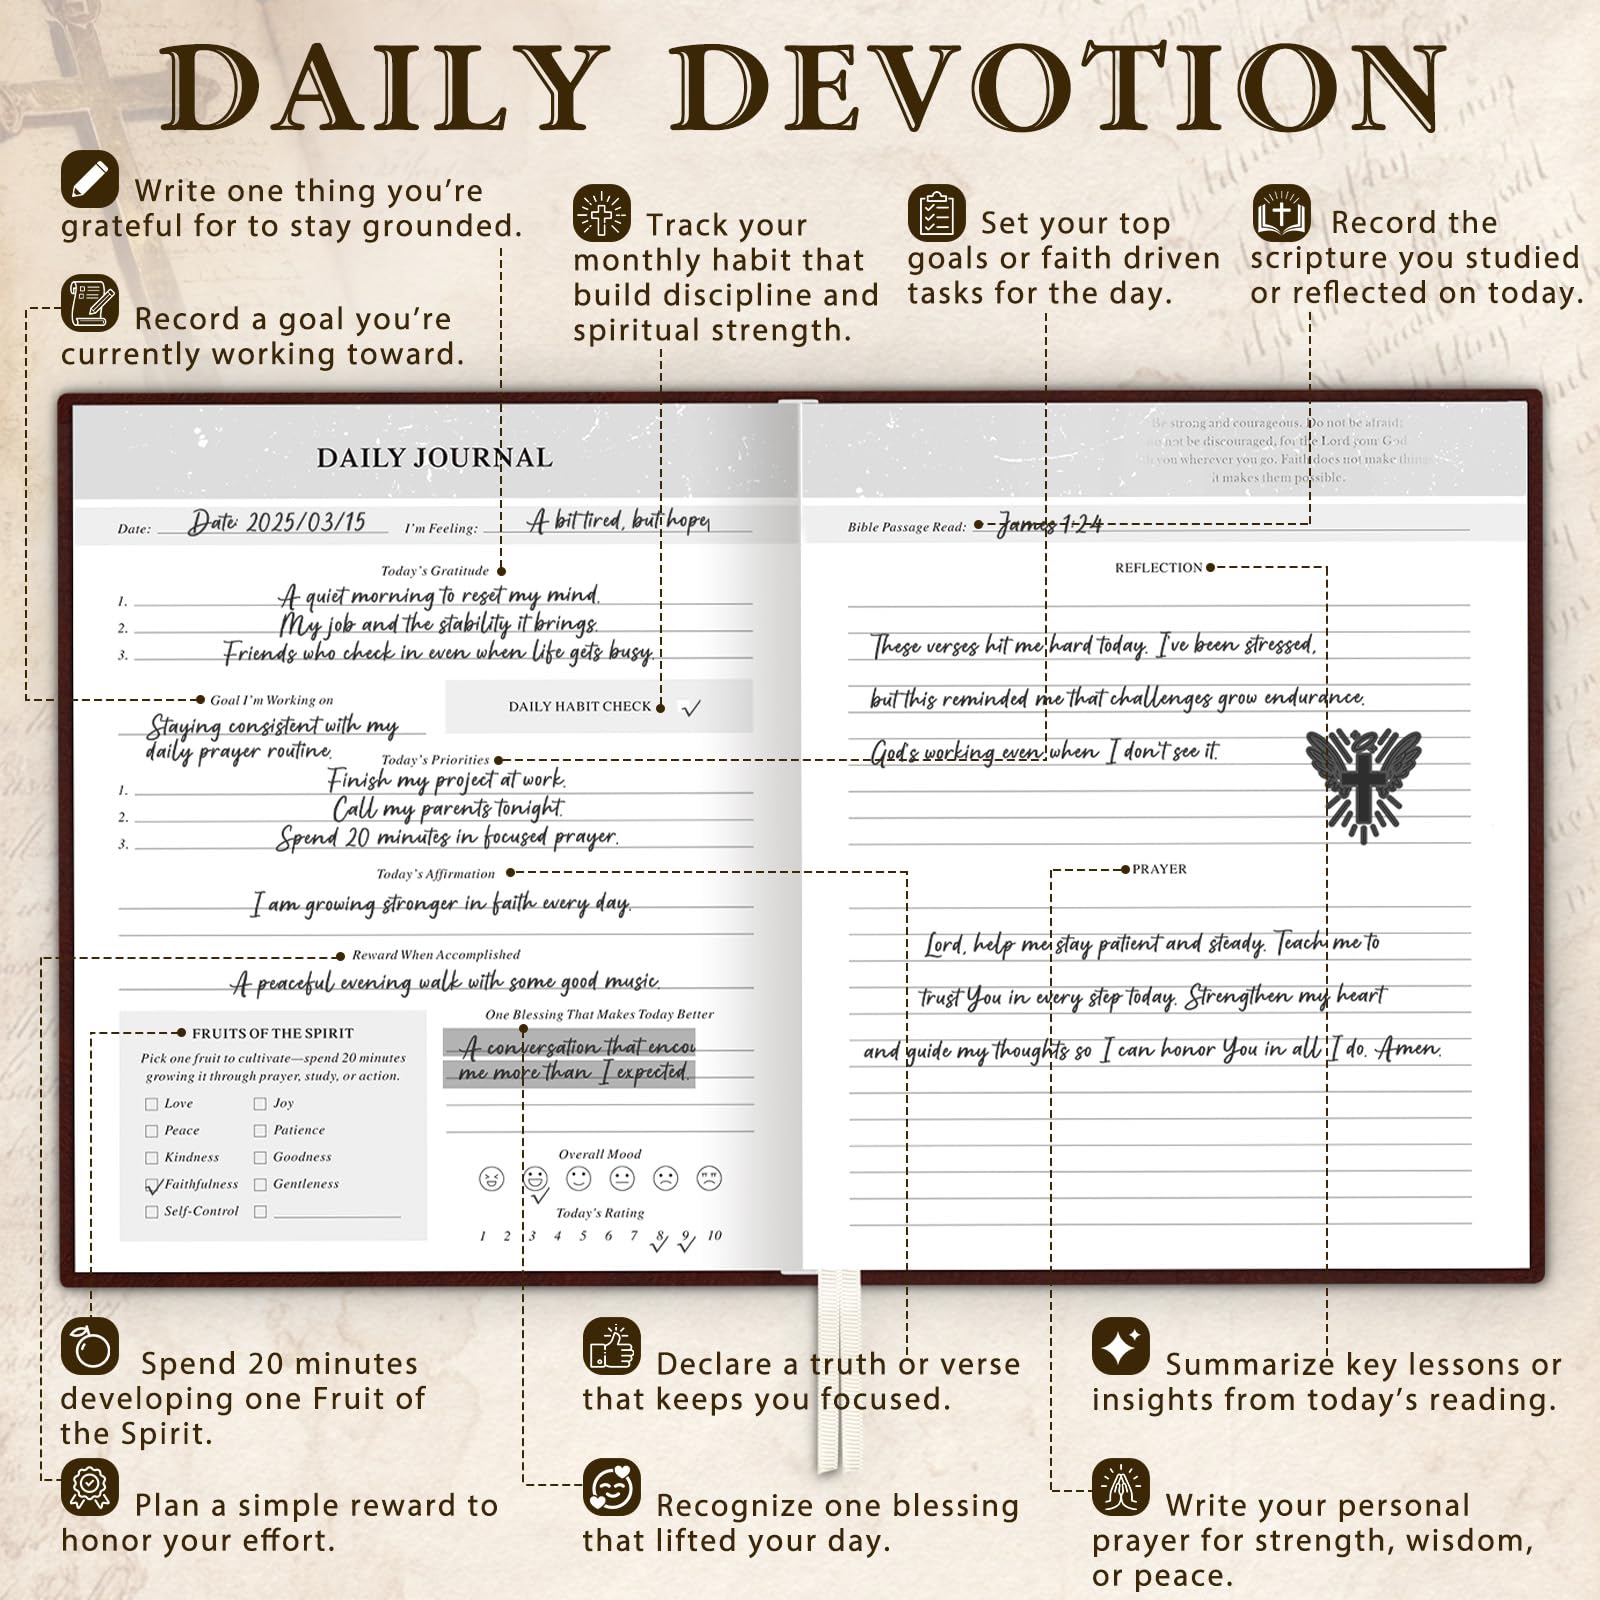 DAILY DEVOTION
Write one thing you're
grateful for to stay grounded.
Record a goal you're
currently working toward.
Track your
monthly habit that
build discipline and
spiritual strength.
Set your top
goals or faith driven
tasks for the day.
Record the
scripture you studied
or reflected on today.
DAILY JOURNAL
Date: Date: 2025/03/15 I'm Feeling: A bit tired, but hope
Today's Gratitude
1. A quiet morning to reset my mind.
2. My job and the stability it brings.
3. Friends who check in even when life gets busy.
Goal I'm Working on
Staying consistent with my
daily prayer routine.
DAILY HABIT CHECK
Today's Priorities
1. Finish my project at work.
2. Call my parents tonight.
3. Spend 20 minutes in focused prayer.
Today's Affirmation
I am growing stronger in faith every day.
Reward When Accomplished
A peaceful evening walk with some good music.
FRUITS OF THE SPIRIT
Pick one fruit to cultivate—spend 20 minutes
growing it through prayer, study, or action.
Love Joy
Peace Patience
Kindness Goodness
Faithfulness Gentleness
Self-Control
One Blessing That Makes Today Better
A conversation that encou
me more than I expected.
Overall Mood
Today's Rating
1 2 3 4 5 6 7 8 9 10
Be strong and courageous. Do not be afraid;
not be discouraged, for the Lord your God
you wherever you go. Faith does not make thing
it makes them possible.
Bible Passage Read: James 1:2-4
REFLECTION
These verses hit me hard today. I've been stressed,
but this reminded me that challenges grow endurance.
God's working even when I don't see it.
PRAYER
Lord, help me stay patient and steady. Teach me to
trust You in every step today. Strengthen my heart
and guide my thoughts so I can honor You in all I do. Amen.
Spend 20 minutes
developing one Fruit of
the Spirit.
Plan a simple reward to
honor your effort.
Declare a truth or verse
that keeps you focused.
Recognize one blessing
that lifted your day.
Summarize key lessons or
insights from today's reading.
Write your personal
prayer for strength, wisdom,
or peace.